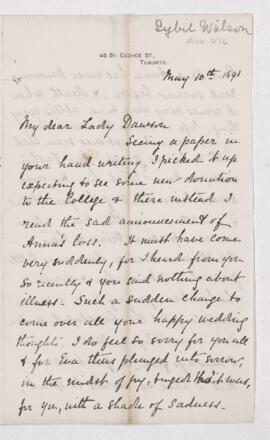 Sybil Wilson
45 St. George St.,
Toronto.
May 10th 1891
My dear Lady Dawson
Seeing a paper in
your hand writing, I picked it up
expecting to see some new donation
to the College & there instead I
read the sad announcement of
Anna's loss. It must have come
very suddenly, for I heard from you
so recently & you said nothing about
illness - Such a sudden change to
come over all your happy wedding
thoughts I do feel so sorry for you all
& for Eva thus plunged into sorrow,
in the midst of joy, tinged tho' it was,
for you, with a shade of sadness -